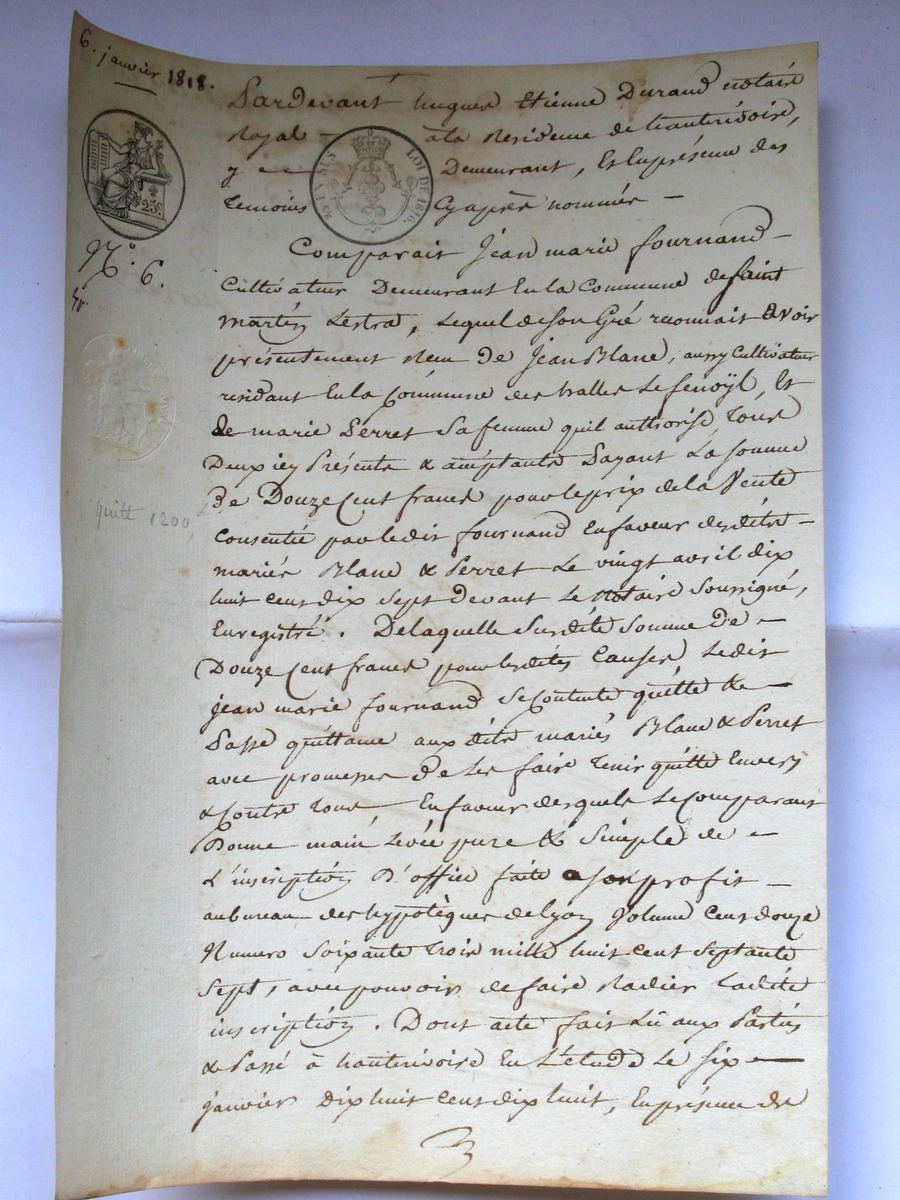 6. janvier 1818.
Pardevant hugues Etienne Durand notaire
Royal — ala Residence de hauterivoire,
y — Demeurant, Et Enprésence des
Temoins Cyaprès nommés —
25c.
10 EN SUS LOI DE 1816.
N°. 6.
Comparait Jean marie fournand —
Cultivateur Demeurant En la Commune de saint
martin Lestra, Lequel de son Gré reconnait avoir
présentement Recu de Jean Blanc, aussy Cultivateur
residant En la Commune des halles Le fenoÿl, Et
de marie Perret Sa femme quil authorise, Tous
Deux icy Présents & acceptants Payant La somme
De Douze Cent francs pour le prix de la Vente
quitt 1200
Consentie par ledit fournand En faveur desdits —
mariés Blanc & Perret Le vingt avril dix
huit cent dix Sept devant Le notaire Soussigné,
Enregistré. De laquelle Susdite Somme De —
Douze Cent francs pour lesdites Causes Ledit
jean marie fournand Se Contente quitte &
Passe quittance aux dits mariés Blanc & Perret
avec promesse de Les faire Tenir quitte Envers
& Contre Tous, En faveur desquels Le Comparant
Donne main Levée pure & Simple de —
L'inscription D'office faite a son profit —
au bureau des hypotèques de lyon Volume Cent douze
Numero Soixante Trois mille huit cent Septante
Sept, avec pouvoir de faire Radier Ladite
inscription. Dont acte fait Lû aux Parties
& Passé à hauterivoire En L'etude Le Six —
janvier Dix huit Cent dix huit, En présence de